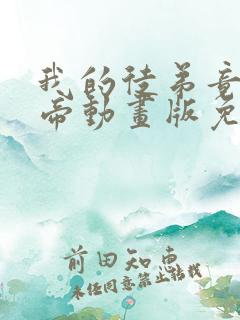 我的徒弟竟
帝動畫版免
前田知惠
未经同意禁止转载